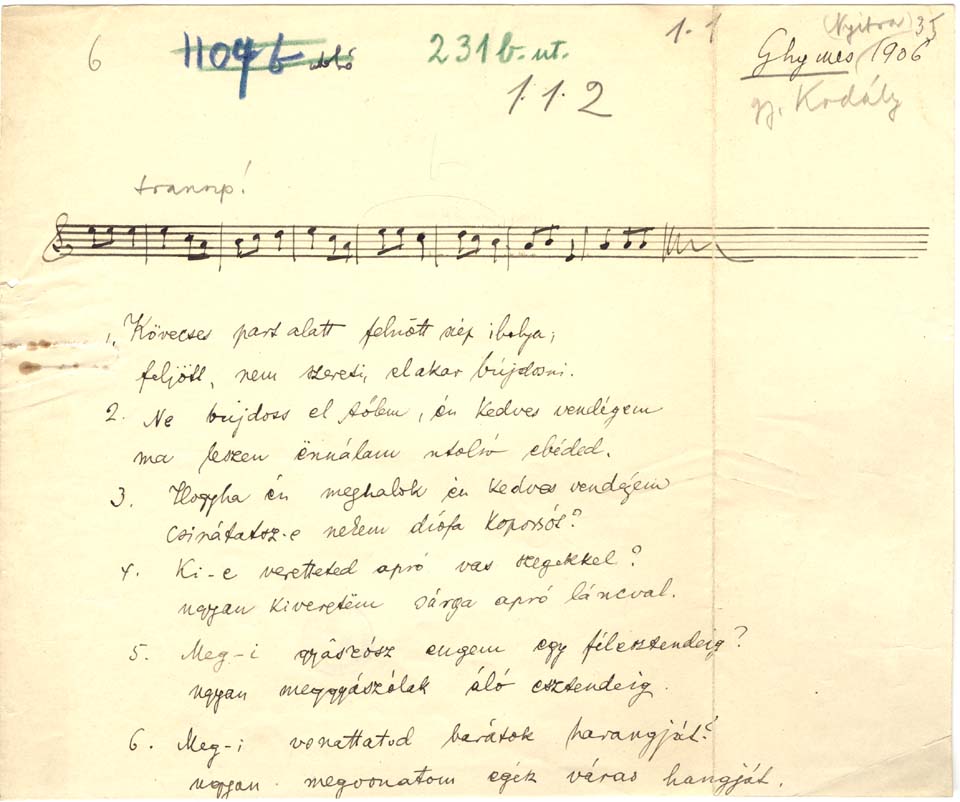 6 1104 b utolsó 231 b. ut. 1.1 (Nyitra) 35
Ghymes 1906
1.1.2 gy. Kodály
transp!
1. Kövecses part alatt felnőtt szép ibolya;
feljött, nem szereti, el akar bújdosni.
2. Ne bújdoss el tőlem, én kedves vendégem
ma leszen ënnálam utolsó ebéded.
3. Hogyha én meghalok én kedves vendégem
Csinátatsz-e nekem diófa koporsót?
4. Ki-e veretteted apró vas szegekkel?
ugyan kiveretëm sárga apró láncval.
5. Meg-i gyászósz engem egy félesztendeig?
ugyan meggyászólak áló esztendeig.
6. Meg-i vonattatod barátok harangját?
ugyan megvonatom egész város hangját.